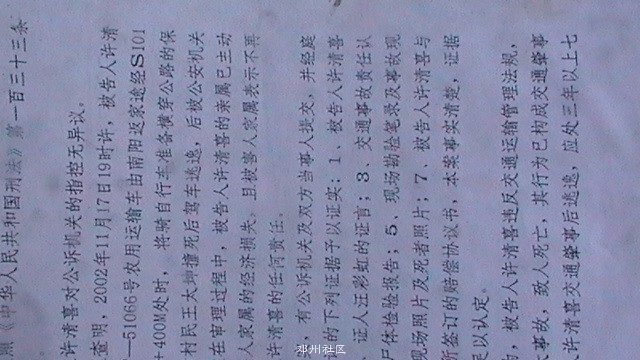 照《中华人民共和国刑法》第一百三十三条
许清喜对公诉机关的指控无异议。
查明，2002年11月17日19时许，被告人许清
—51066号农用运输车由南阳返家途经S101
+400M处时，将骑自行车准备横穿公路的保
村民王大坤撞死后驾车逃逸，后被公安机关
在审理过程中，被告人许清喜的亲属已主动
人家属的经济损失。且被害人家属表示不再
许清喜的任何责任。
，有公诉机关及双方当事人提交，并经庭
的下列证据予以证实：1、被告人许清喜
、证人汪彩虹的证言；3、交通事故责任认
尸体检验报告；5、现场勘验笔录及事故现
现场照片及死者照片；7、被告人许清喜与
所签订的赔偿协议书，本案事实清楚，证据
足以认定。
，被告人许清喜违反交通运输管理法规，
事故，致人死亡，其行为已构成交通肇事
许清喜交通肇事后逃逸，应处三年以上七
邓州社区